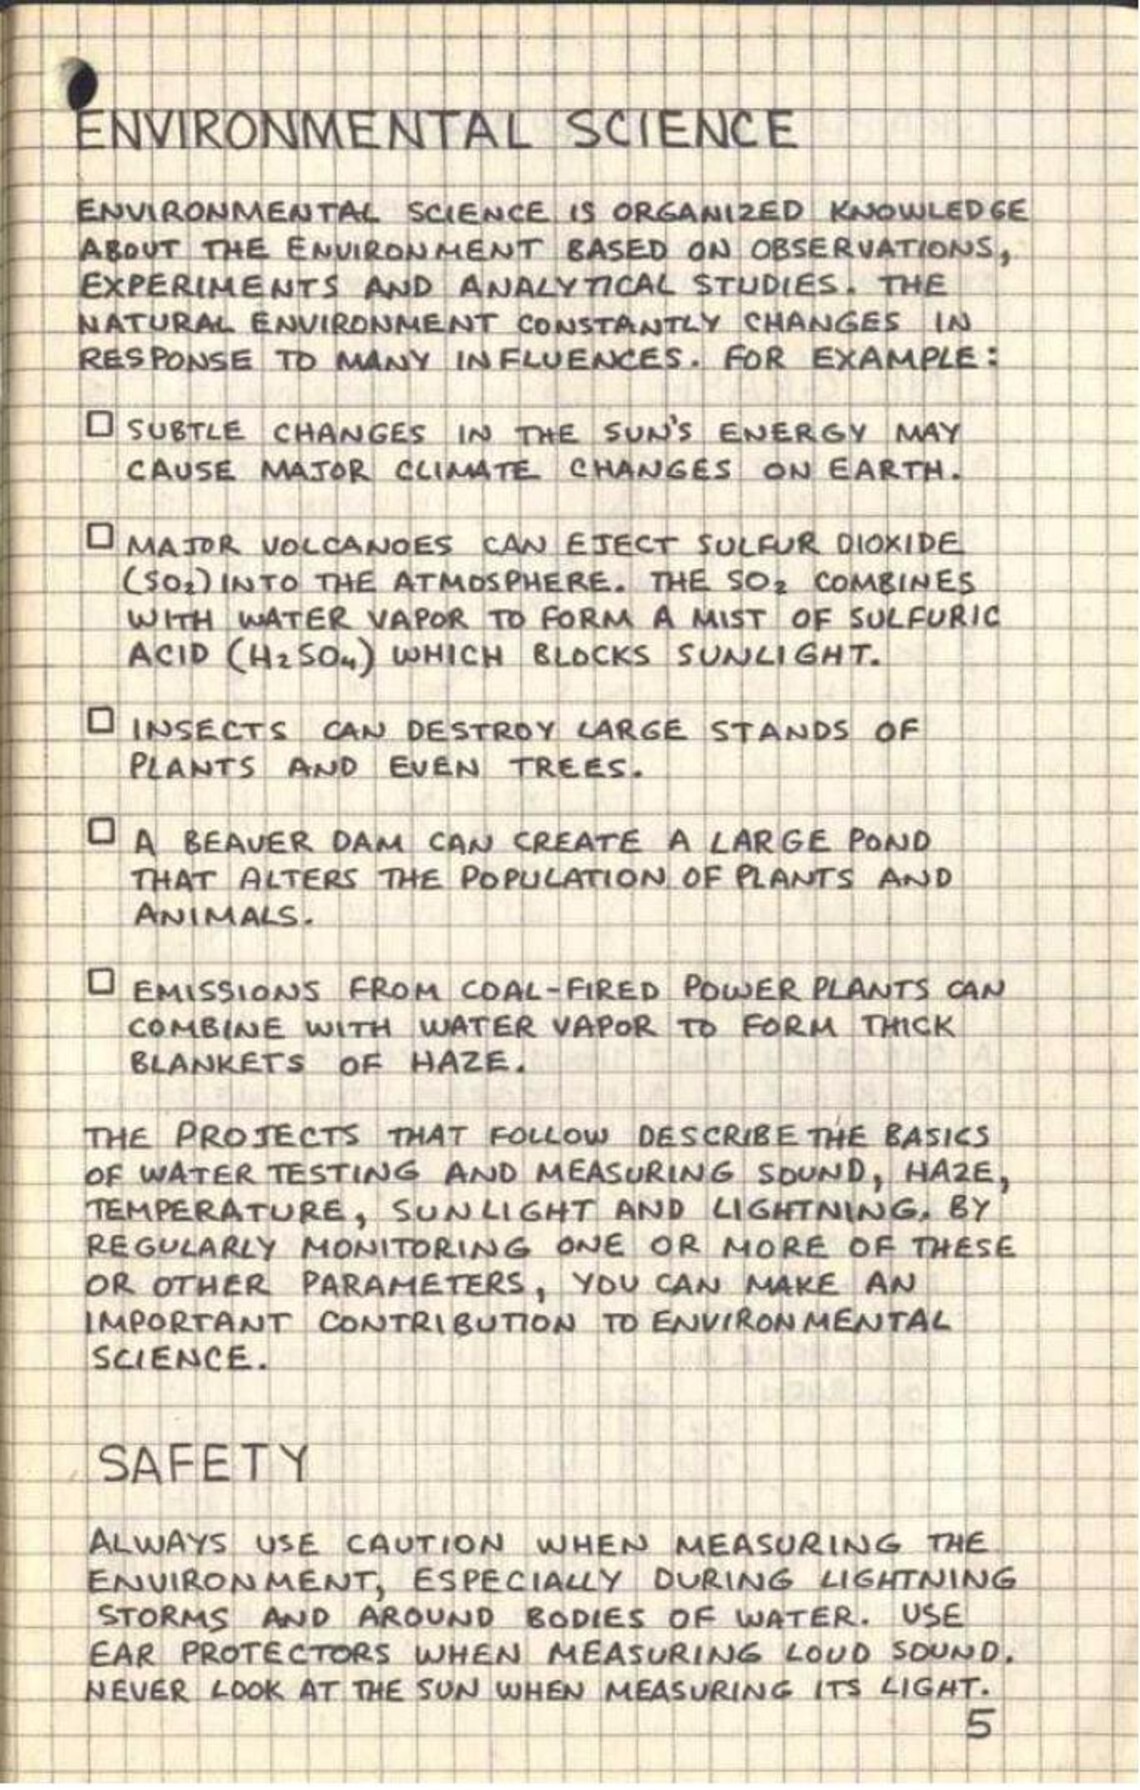 ENVIRONMENTAL SCIENCE
ENVIRONMENTAL SCIENCE IS ORGANIZED KNOWLEDGE
ABOUT THE ENVIRONMENT BASED ON OBSERVATIONS,
EXPERIMENTS AND ANALYTICAL STUDIES. THE
NATURAL ENVIRONMENT CONSTANTLY CHANGES IN
RESPONSE TO MANY INFLUENCES. FOR EXAMPLE:
□ SUBTLE CHANGES IN THE SUN'S ENERGY MAY
CAUSE MAJOR CLIMATE CHANGES ON EARTH.
□ MAJOR VOLCANOES CAN EJECT SULFUR DIOXIDE
(SO₂) INTO THE ATMOSPHERE. THE SO₂ COMBINES
WITH WATER VAPOR TO FORM A MIST OF SULFURIC
ACID (H₂SO₄) WHICH BLOCKS SUNLIGHT.
□ INSECTS CAN DESTROY LARGE STANDS OF
PLANTS AND EVEN TREES.
□ A BEAVER DAM CAN CREATE A LARGE POND
THAT ALTERS THE POPULATION OF PLANTS AND
ANIMALS.
□ EMISSIONS FROM COAL-FIRED POWER PLANTS CAN
COMBINE WITH WATER VAPOR TO FORM THICK
BLANKETS OF HAZE.
THE PROJECTS THAT FOLLOW DESCRIBE THE BASICS
OF WATER TESTING AND MEASURING SOUND, HAZE,
TEMPERATURE, SUNLIGHT AND LIGHTNING. BY
REGULARLY MONITORING ONE OR MORE OF THESE
OR OTHER PARAMETERS, YOU CAN MAKE AN
IMPORTANT CONTRIBUTION TO ENVIRONMENTAL
SCIENCE.
SAFETY
ALWAYS USE CAUTION WHEN MEASURING THE
ENVIRONMENT, ESPECIALLY DURING LIGHTNING
STORMS AND AROUND BODIES OF WATER. USE
EAR PROTECTORS WHEN MEASURING LOUD SOUND.
NEVER LOOK AT THE SUN WHEN MEASURING ITS LIGHT.
5